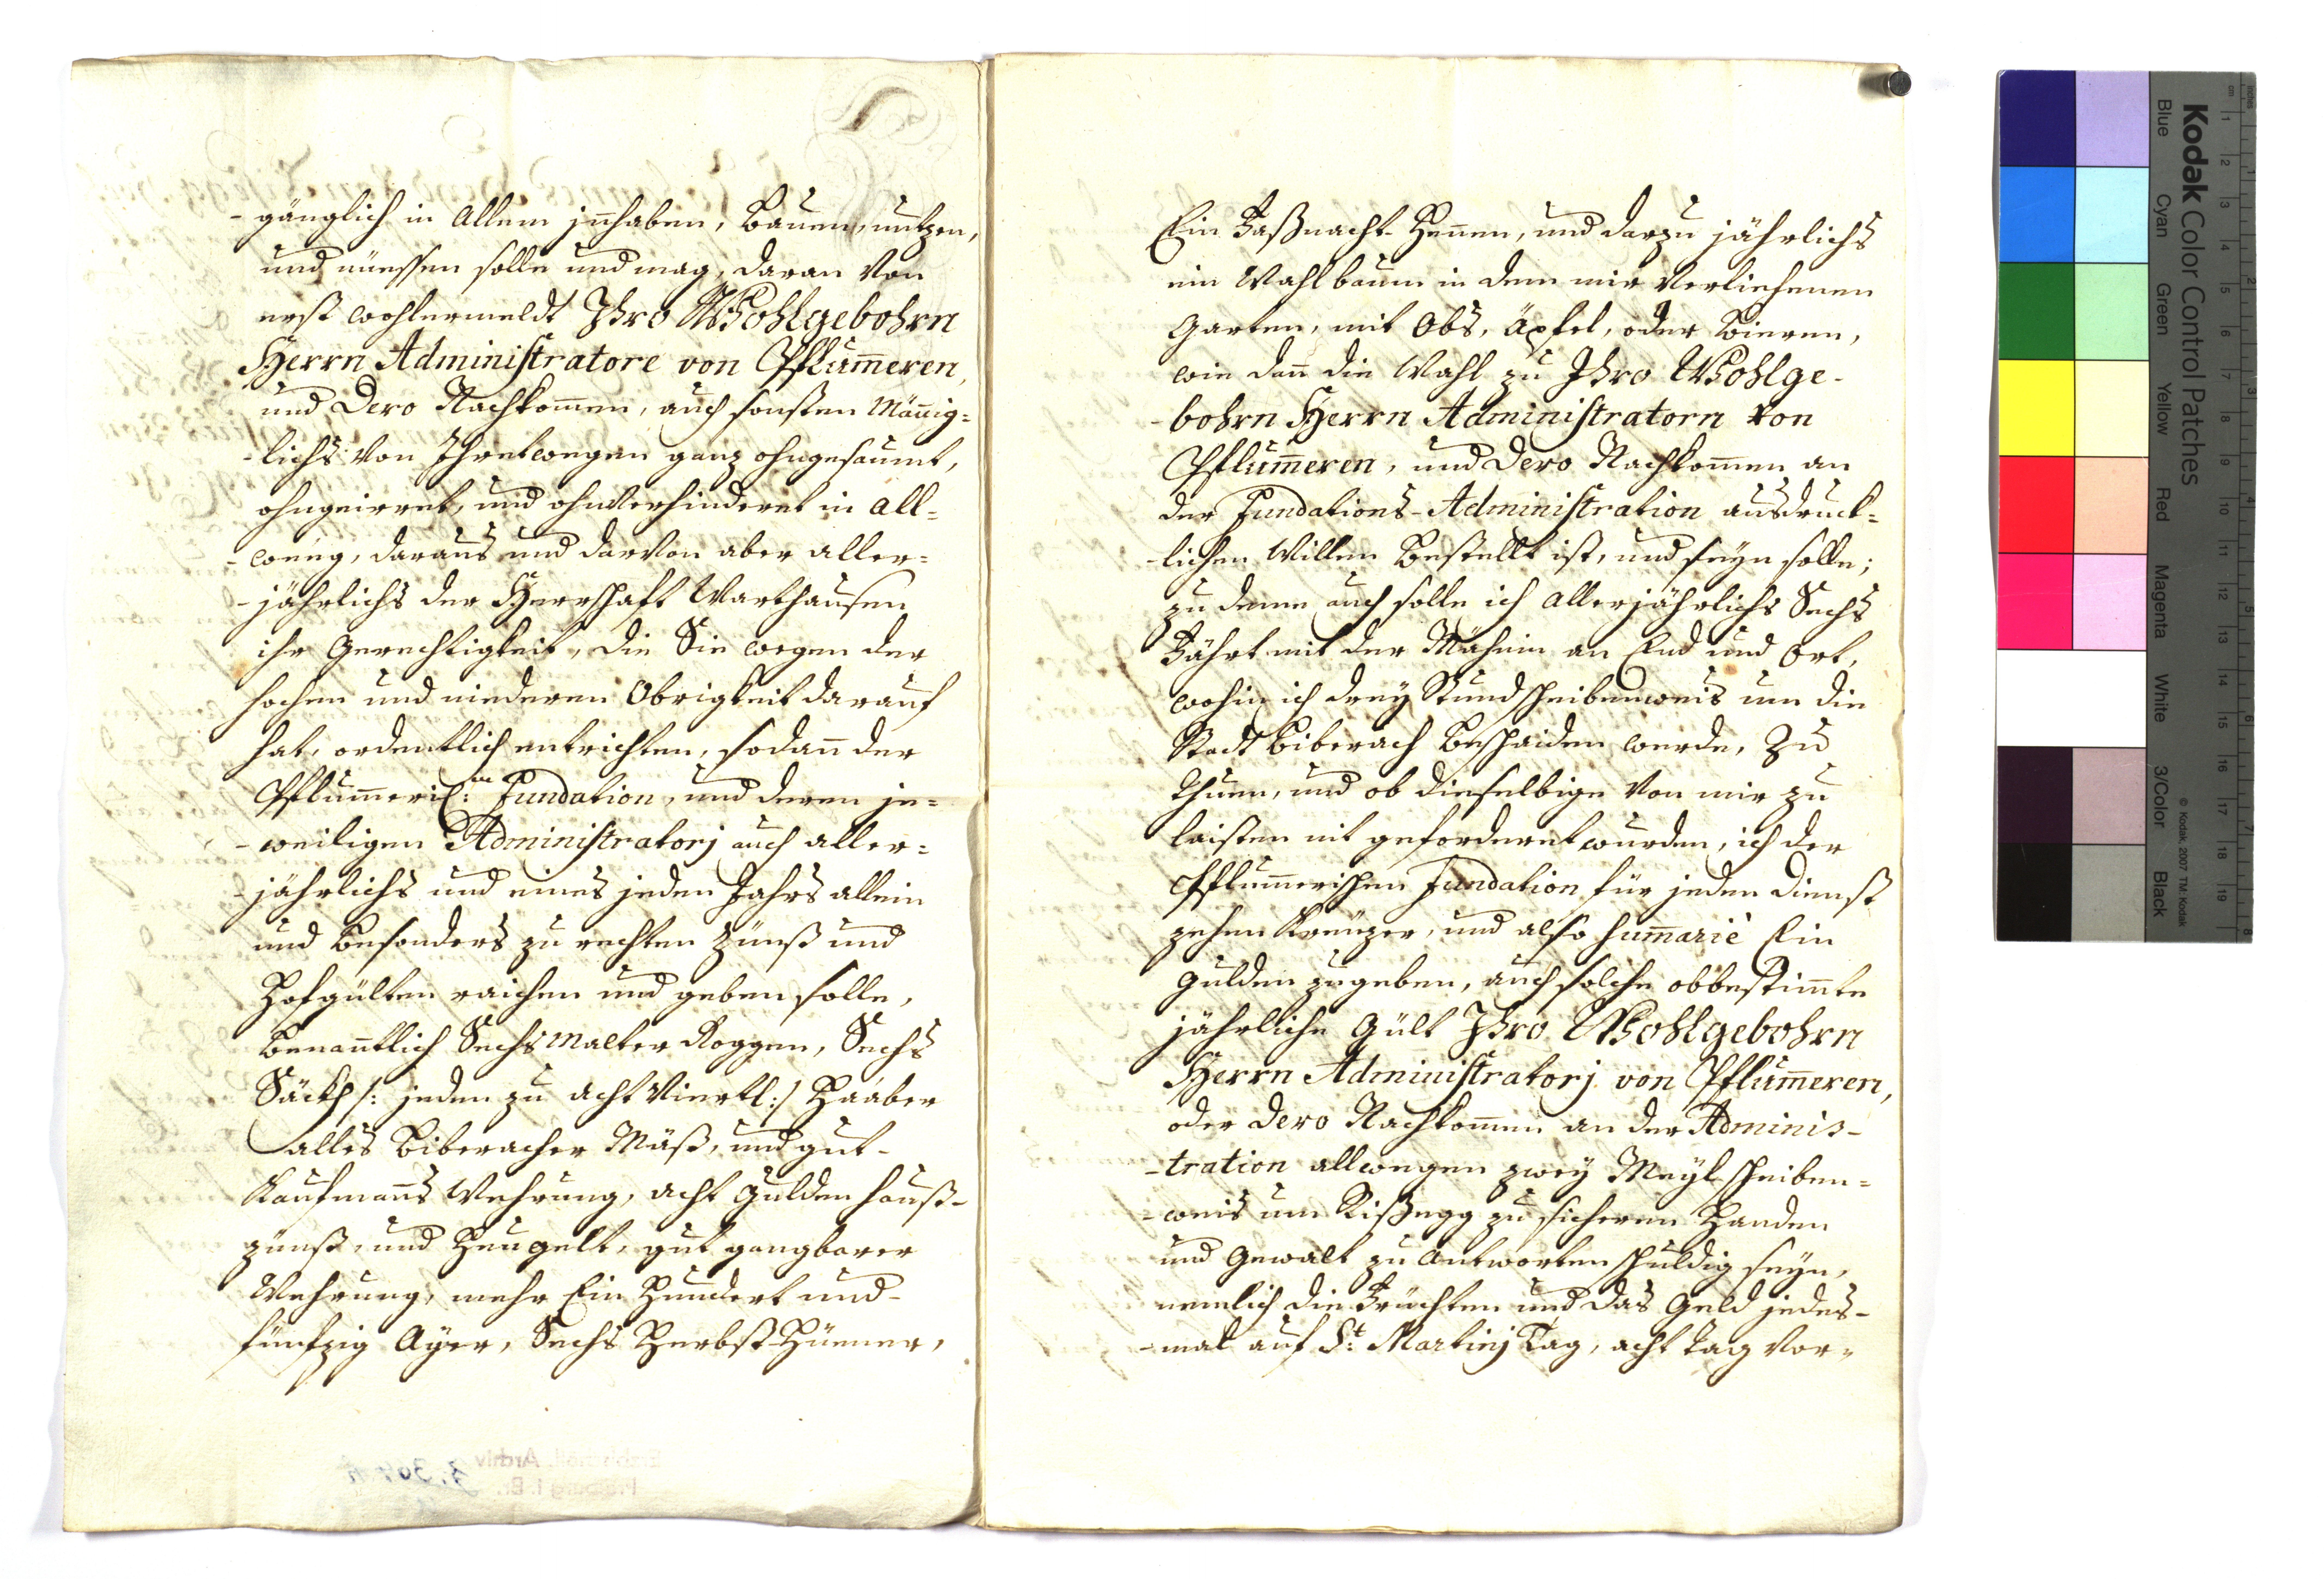 -gänglich in Allem jnnhaben, Bauen, nutzen,
und nüessen solle und mag, daran von
erst wohlermeldt Ihro Wohlgebohrn
Herrn Administratore von Pflum̄eren,
und Dero Nachkom̄en, auch sonsten Män̄ig=
-lichs von Ihretwegen ganz ohngesaumt,
ohngeirret, und ohnverhinderet in all=
-weeg, daraus und darvon aber aller=
-jährlichs der Herrschaft Warthausen
ihr Gerechtigkeit, die Sie wegen der
hochen und nideren Obrigkeit darauf
hat, ordentlich entrichten, sodan̄ der
Pflum̄eris: en Fundation, und deren je=
-weiligen Administratorj auch aller=
-jährlichs und eines jeden Jahrs allein
und besonders zu rechten Zünß und
Hofgülten raichen und geben solle,
Benan̄tlich Sechs Malter Roggen, Sechs
Säckh /: jeden zu acht Viertl :/ Haaber
alles Biberacher Mäß, und gut-
Kaufman̄s Wehrung, acht Gulden hauß-
zünß, und Heugelt, gut gangbarer
Wehrung, mehr Ein Hundert und-
fünfzig Ayer, Sechs Herbst-Hüener,
Ein Faßnacht-Hen̄en, und darzu jährlichs
ein Wahlbaum in dem mir Verliehenen
Garten, mit Obs, Äpfel, oder Bieren,
wie dan̄ die Wahl zu Ihro Wohlge-
-bohrn Herrn Administratorn von
Pflum̄eren, und Dero Nachkom̄en an
der Fundations-Administration ausdruck=
-lichen Willen Bestellt ist, und seyn solle;
zu deme auch solle ich allerjährlichs Sechs
Fährt mit der Mähnin an End und Ort,
wohin ich drey Stund scheibenweis um die
Stadt Biberach Beschaiden werde, Zu
thuen, und ob dieselbige Von mir zu
laisten nit geforderet wurden, ich der
Pflum̄erischen Fundation für jeden Dienst
zehen Kreuzer, und also sum̄ariè Ein
Gulden zugeben, auch solche obbestim̄te
jährliche Gült Ihro Wohlgebohrn
Herrn Administratorj von Pflum̄eren,
oder Dero Nachkom̄en an der Adminis-
-tration allwegen zwey Meyl scheiben=
-weis um Rißegg zu sicheren Handen
und Gewalt zu Antworten schuldig seyn,
nemlich die Früchten und das Geld jedes-
-mal auf St: Martinj Tag, acht Tag Vor=
Kodak Color Control Patches
© Kodak, 2007 TM: Kodak
Blue Cyan Green Yellow Red Magenta White 3/Color Black
inches 1 2 3 4 5 6 7 8
cm 1 2 3 4 5 6 7 8 9 10 11 12 13 14 15 16 17 18 19